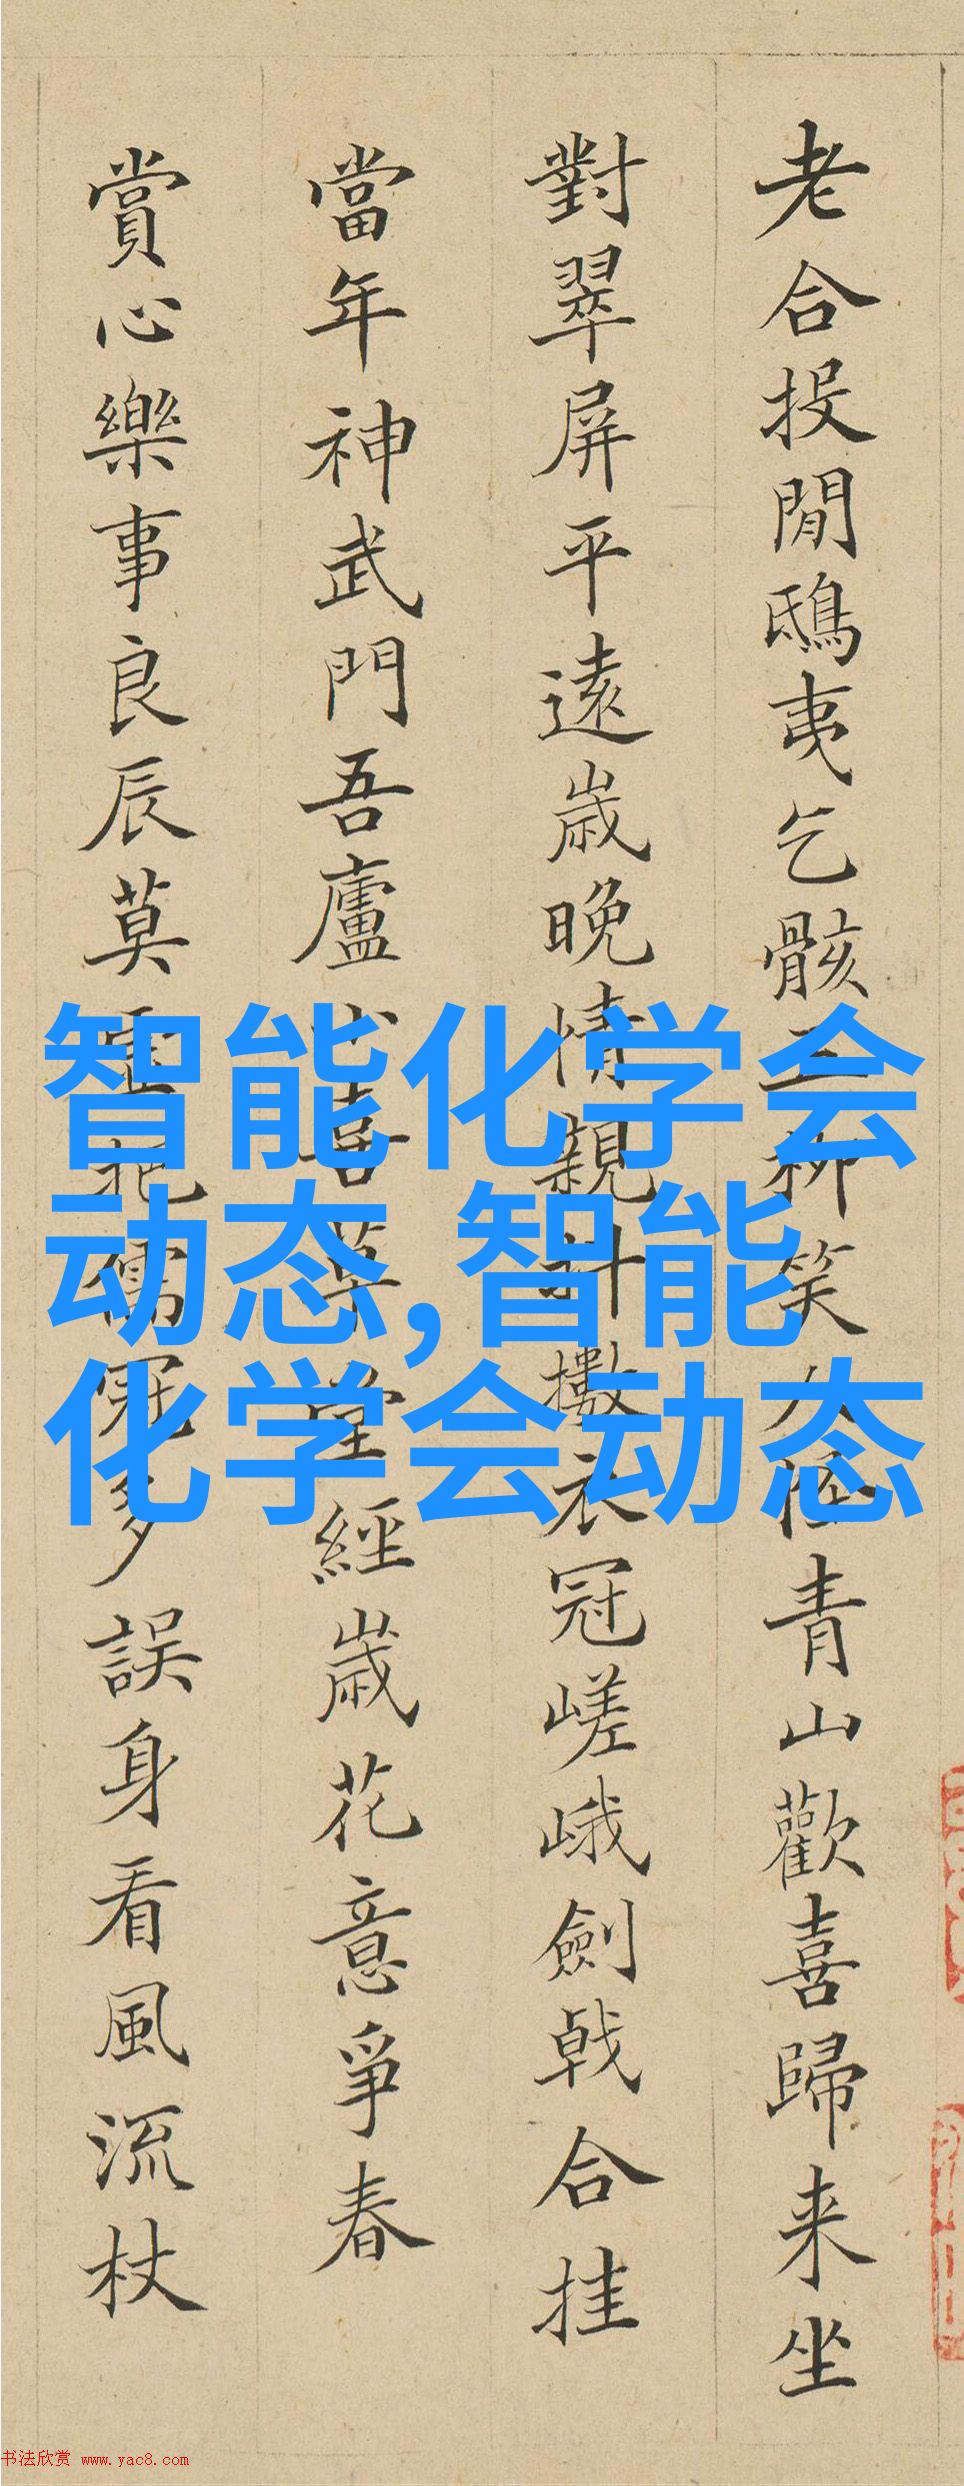 老合投閒鴟夷乞骸五柳笑青山歡喜歸来坐
對翠屏平遠歲晚情親計擻衣冠嵯峨劍戟合挂
當年神武門吾廬喜草堂經歲花意爭春
賞心樂事良辰莫把儒冠多誤身看風流杖
智能化学会
动态,智能
化学会动态
书法欣赏 www.yac8.com